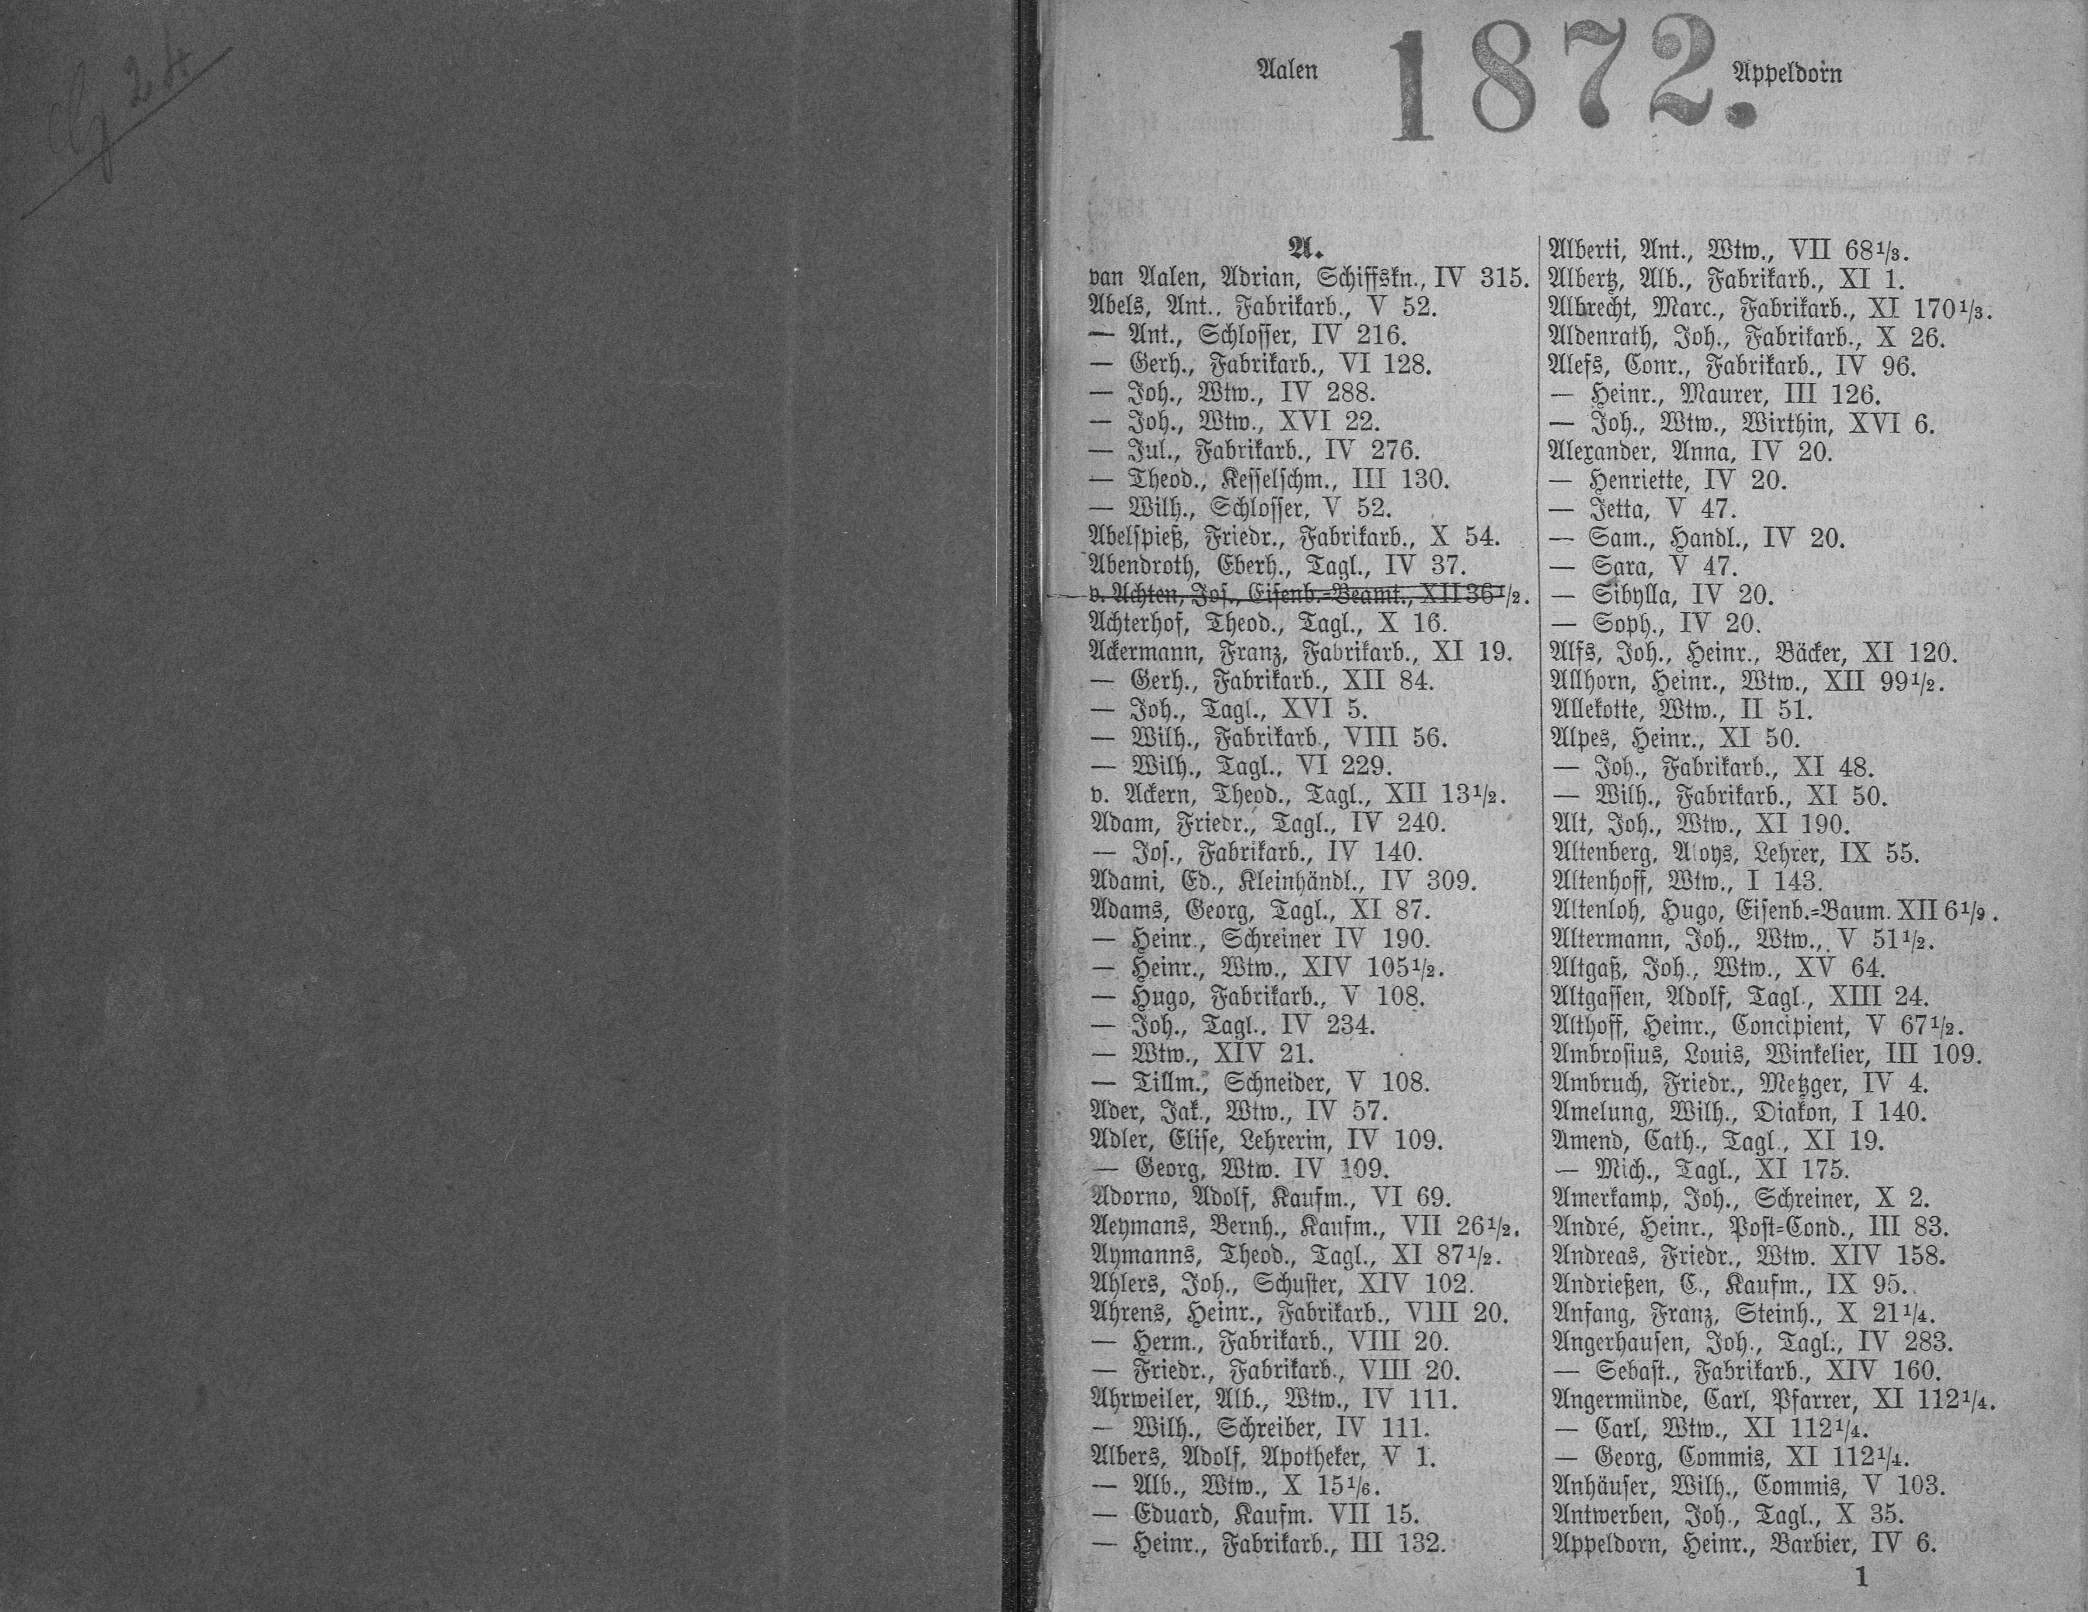 24
1872.
Aalen
Appeldorn
A.
van Aalen, Adrian, Schiffskn., IV 315.
Abels, Ant., Fabrikarb., V 52.
— Ant., Schlosser, IV 216.
— Gerh., Fabrikarb., VI 128.
— Joh., Wtw., IV 288.
— Joh., Wtw., XVI 22.
— Jul., Fabrikarb., IV 276.
— Theod., Kesselschm., III 130.
— Wilh., Schlosser, V 52.
Abelspieß, Friedr., Fabrikarb., X 54.
Abendroth, Eberh., Tagl., IV 37.
v. Achten, Jos., Eisenb.=Beamt., XII 36 1/2.
Achterhof, Theod., Tagl., X 16.
Ackermann, Franz, Fabrikarb., XI 19.
— Gerh., Fabrikarb., XII 84.
— Joh., Tagl., XVI 5.
— Wilh., Fabrikarb., VIII 56.
— Wilh., Tagl., VI 229.
v. Ackern, Theod., Tagl., XII 13 1/2.
Adam, Friedr., Tagl., IV 240.
— Jos., Fabrikarb., IV 140.
Adami, Ed., Kleinhändl., IV 309.
Adams, Georg, Tagl., XI 87.
— Heinr., Schreiner IV 190.
— Heinr., Wtw., XIV 105 1/2.
— Hugo, Fabrikarb., V 108.
— Joh., Tagl., IV 234.
— Wtw., XIV 21.
— Tillm., Schneider, V 108.
Ader, Jak., Wtw., IV 57.
Adler, Elise, Lehrerin, IV 109.
— Georg, Wtw. IV 109.
Adorno, Adolf, Kaufm., VI 69.
Aeymans, Bernh., Kaufm., VII 26 1/2.
Aymanns, Theod., Tagl., XI 87 1/2.
Ahlers, Joh., Schuster, XIV 102.
Ahrens, Heinr., Fabrikarb., VIII 20.
— Herm., Fabrikarb., VIII 20.
— Friedr., Fabrikarb., VIII 20.
Ahrweiler, Alb., Wtw., IV 111.
— Wilh., Schreiber, IV 111.
Albers, Adolf, Apotheker, V 1.
— Alb., Wtw., X 15 1/6.
— Eduard, Kaufm. VII 15.
— Heinr., Fabrikarb., III 132.
Alberti, Ant., Wtw., VII 68 1/3.
Albertz, Alb., Fabrikarb., XI 1.
Albrecht, Marc., Fabrikarb., XI 170 1/3.
Aldenrath, Joh., Fabrikarb., X 26.
Alefs, Conr., Fabrikarb., IV 96.
— Heinr., Maurer, III 126.
— Joh., Wtw., Wirthin, XVI 6.
Alexander, Anna, IV 20.
— Henriette, IV 20.
— Jetta, V 47.
— Sam., Handl., IV 20.
— Sara, V 47.
— Sibylla, IV 20.
— Soph., IV 20.
Alfs, Joh., Heinr., Bäcker, XI 120.
Allhorn, Heinr., Wtw., XII 99 1/2.
Allekotte, Wtw., II 51.
Alpes, Heinr., XI 50.
— Joh., Fabrikarb., XI 48.
— Wilh., Fabrikarb., XI 50.
Alt, Joh., Wtw., XI 190.
Altenberg, Aloys, Lehrer, IX 55.
Altenhoff, Wtw., I 143.
Altenloh, Hugo, Eisenb.=Baum. XII 6 1/2.
Altermann, Joh., Wtw., V 51 1/2.
Altgaß, Joh., Wtw., XV 64.
Altgassen, Adolf, Tagl., XIII 24.
Althoff, Heinr., Concipient, V 67 1/2.
Ambrosius, Louis, Winkelier, III 109.
Ambruch, Friedr., Metzger, IV 4.
Amelung, Wilh., Diakon, I 140.
Amend, Cath., Tagl., XI 19.
— Mich., Tagl., XI 175.
Amerkamp, Joh., Schreiner, X 2.
André, Heinr., Post=Cond., III 83.
Andreas, Friedr., Wtw. XIV 158.
Andrießen, C., Kaufm., IX 95.
Anfang, Franz, Steinh., X 21 1/4.
Angerhausen, Joh., Tagl., IV 283.
— Sebast., Fabrikarb., XIV 160.
Angermünde, Carl, Pfarrer, XI 112 1/4.
— Carl, Wtw., XI 112 1/4.
— Georg, Commis, XI 112 1/4.
Anhäuser, Wilh., Commis, V 103.
Antwerben, Joh., Tagl., X 35.
Appeldorn, Heinr., Barbier, IV 6.
1